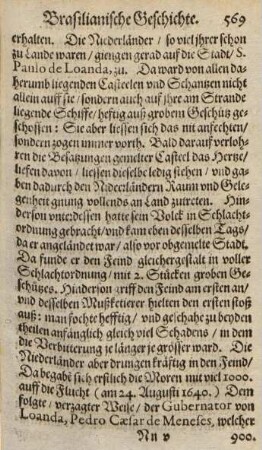 Brasilianische Geschichte. 569
erhalten. Die Niederländer / so viel jhrer schon
zu Lande waren / giengen gerad auff die Stadt / S.
Paulo de Loanda, zu. Da ward von allen da-
herumb liegenden Casteelen und Schantzen nicht
allein auff sie / sondern auch auf jhre am Strande
liegende Schiffe / hefftig auß grobem Geschütz ge-
schossen: Sie aber liessen sich das nit anfechten /
sondern zogen immer vorth. Bald darauf verloh-
ren die Besatzungen gemelter Casteel das Hertze /
liefen davon / liessen dieselbe ledig stehen / und ga-
ben dadurch den Niderländern Raum und Gele-
genheit gnung vollends an Land zutreten. Hin-
derson unterdessen hatte sein Volck in Schlacht-
ordnung gebracht / und kam eben desselben Tags /
da er angeländet war / also vor obgemelte Stadt.
Da funde er den Feind gleichergestalt in voller
Schlachtordnung / mit 2. Stücken groben Ge-
schützes. Hinderson griff den Feind am ersten an /
und desselben Mußketierer hielten den ersten stoß
auß: man fochte hefftig / und geschahe zu beyden
theilen anfänglich gleich viel Schadens / in dem
die Verbitterung je länger je grösser ward. Die
Niederländer aber drungen kräftig in den Feind /
Da begabē sich erstlich die Moren mit viel 1000.
auff die Flucht (am 24. Augusti 1640.) Dem
folgte / verzagter Weise / der Gubernator von
Loanda, Pedro Cæsar de Meneses, welcher
Nn v 900.